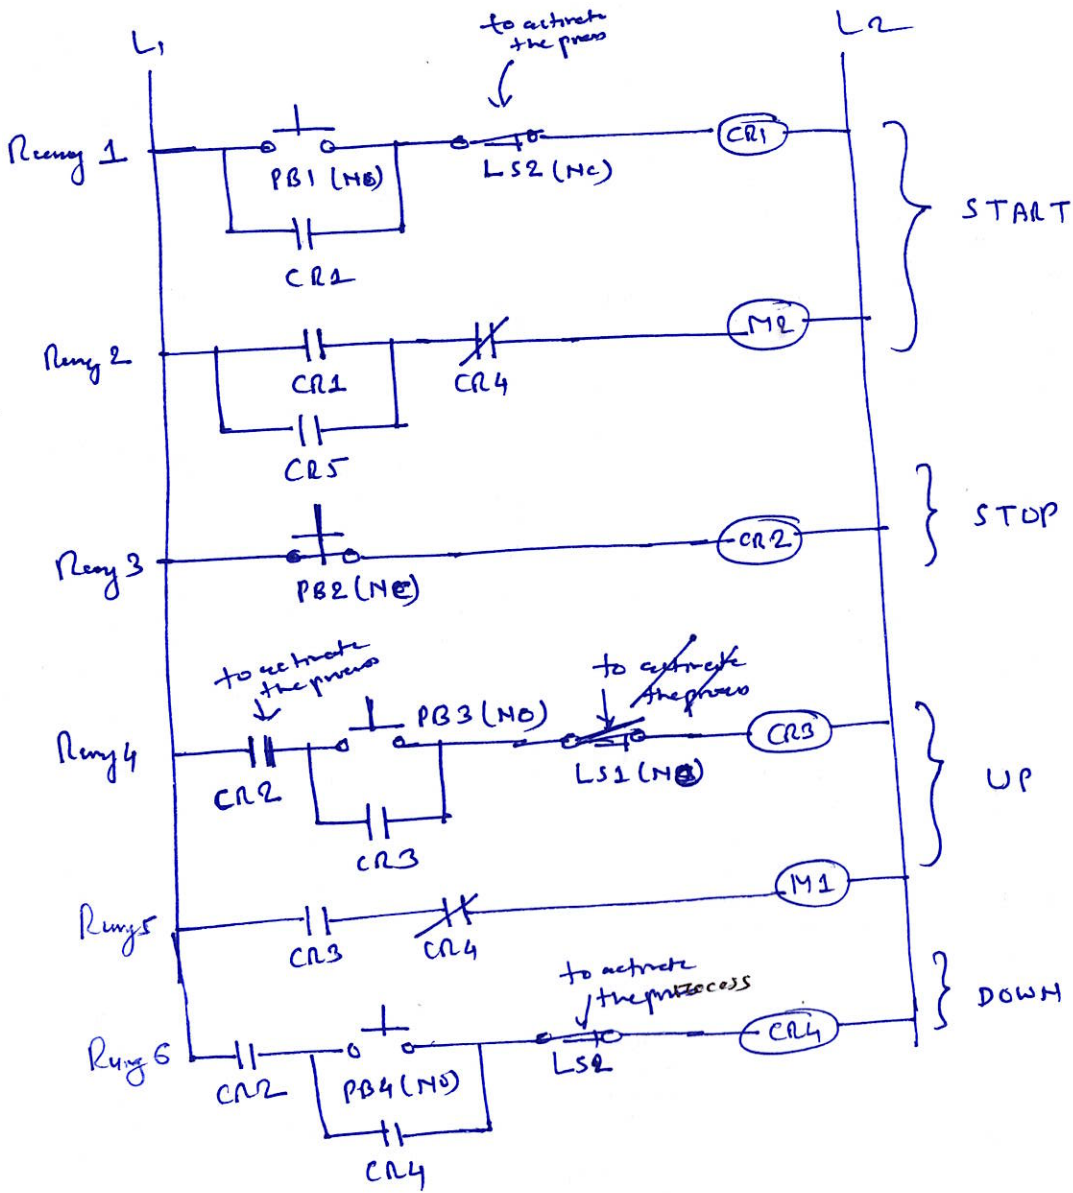 to activate
the press
L1
L2
Rung 1
PB1 (NO)
LS2 (NC)
CR1
CR1
START
Rung 2
CR1
CR4
M2
CR5
Rung 3
PB2 (NC)
CR2
STOP
to activate
the process
to activate
the process
Rung 4
CR2
PB3 (NO)
LS1
CR3
UP
CR3
Rung 5
CR3
CR4
M1
to activate
the process
DOWN
Rung 6
CR2
PB4 (NO)
LS2
CR4
CR4